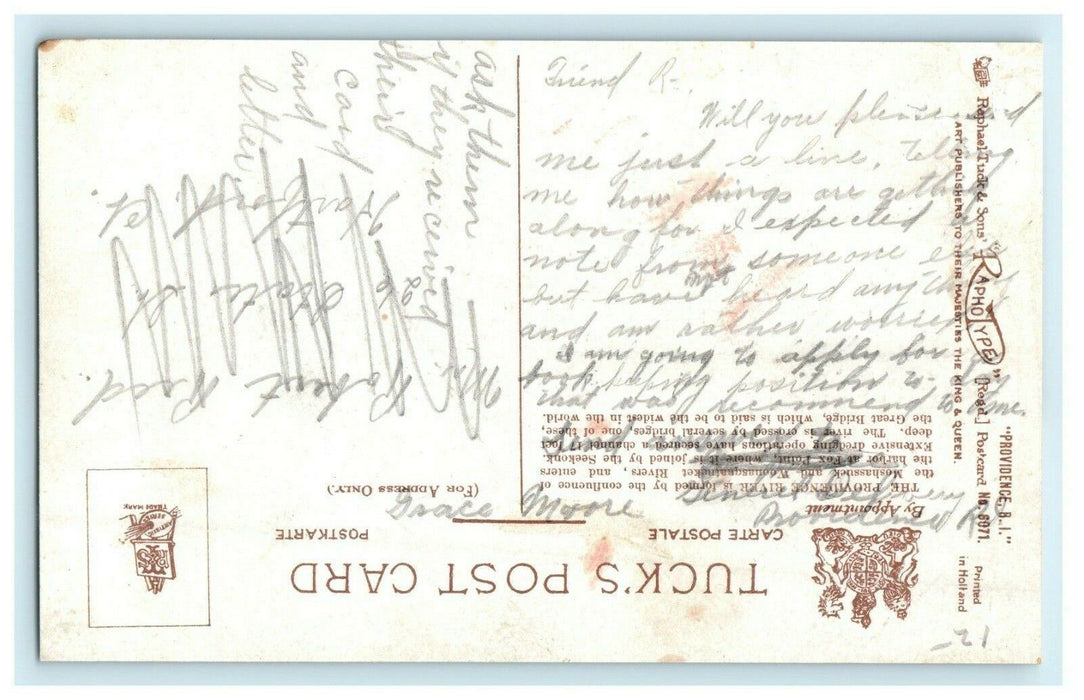 Friend R-,
Will you please send
me just a line, Telling
me how things are getting
along for I expected
note from someone
but have not heard anything
and am rather worried
I am going to apply for
book keeping position to-day
that was recommend to me.
Grace Moore
General Delivery
Providence R.I.
ask them
if they received
their
card
and
letter.
Mr. Robert Reed.
26 St.
Hartford.
Ct.
TUCK'S POST CARD
CARTE POSTALE
POSTKARTE
(FOR ADDRESS ONLY)
By Appointment
THE PROVIDENCE RIVER is formed by the confluence of
the Moshassuck and Woonasquatucket Rivers, and enters
the harbor at Fox Point, where it is joined by the Seekonk.
Extensive dredging operations have secured a channel feet
deep. The river is crossed by several bridges, one of these,
the Great Bridge, which is said to be the widest in the world.
Raphael Tuck & Sons' "RAPHOTYPE" [Regd.] Postcard No. 6971.
ART PUBLISHERS TO THEIR MAJESTIES THE KING & QUEEN.
"PROVIDENCE, R.I."
Printed
in Holland
TRADE MARK
-21